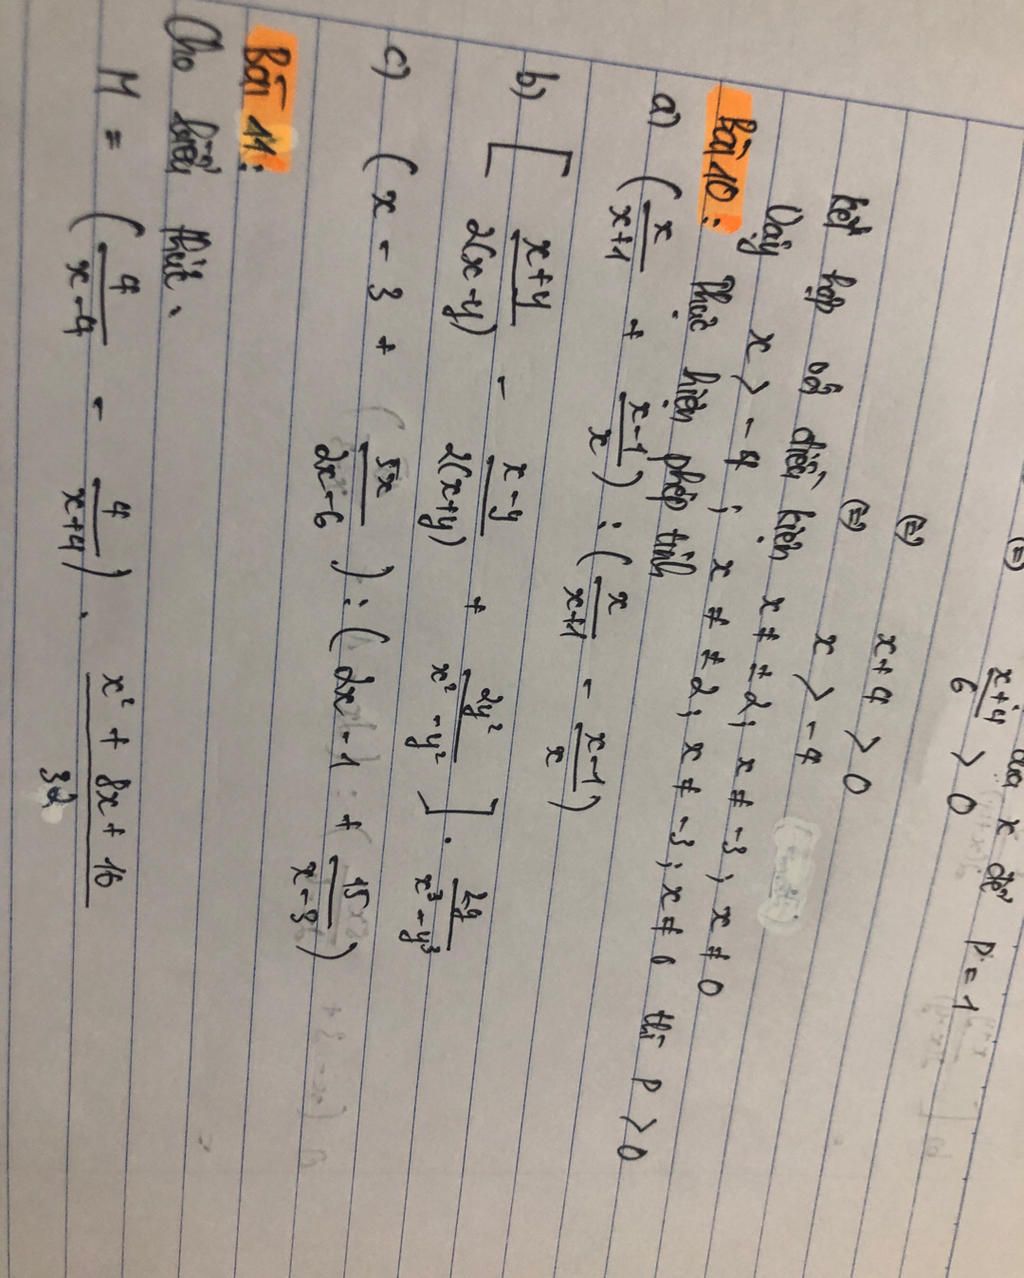 x để P = 1
(=) x+4/6 > 0
(=) x + 4 > 0
(=) x > -4
kết hợp với điều kiện x ≠ ±2; x ≠ -3; x ≠ 0
Vậy x > -4; x ≠ ±2; x ≠ -3; x ≠ 0 thì P > 0
Bài 10: Thực hiện phép tính
a) (x/x+1 + x-1/x) : (x/x+1 - x-1/x)
b) [x+y/2(x-y) - x-y/2(x+y) + 2y²/x² - y²] . 2y/x³ - y³
c) (x - 3 + 5x/2x-6) : (2x - 1 + 15/x-3)
Bài 11:
Cho biểu thức.
M = (4/x-4 - 4/x+4) . x² + 8x + 16/32